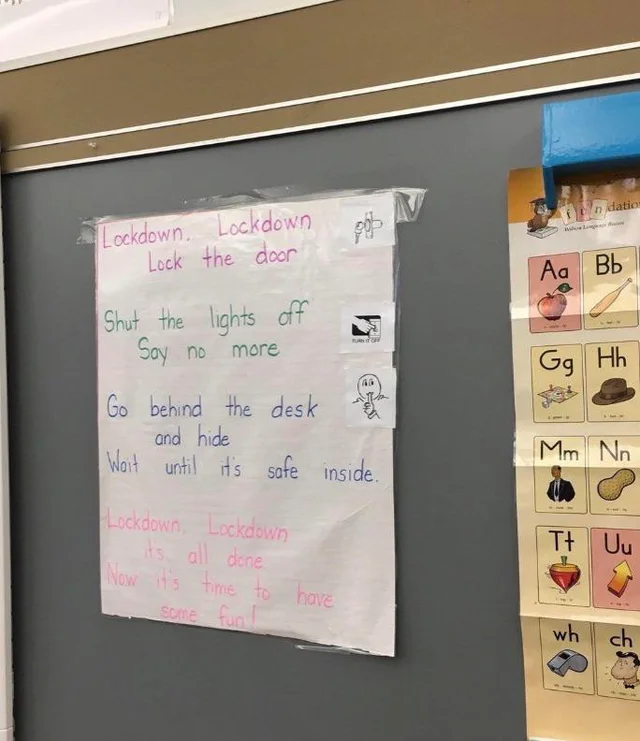 Lockdown, Lockdown
Lock the door
Shut the lights off
Say no more
TURN IT OFF
Go behind the desk
and hide
Wait until it's safe inside.
Lockdown, Lockdown
it's all done
Now it's time to have
some fun!
fundatio
Wilson Language Basics
Aa Bb
Gg Hh
Mm Nn
Tt Uu
wh ch